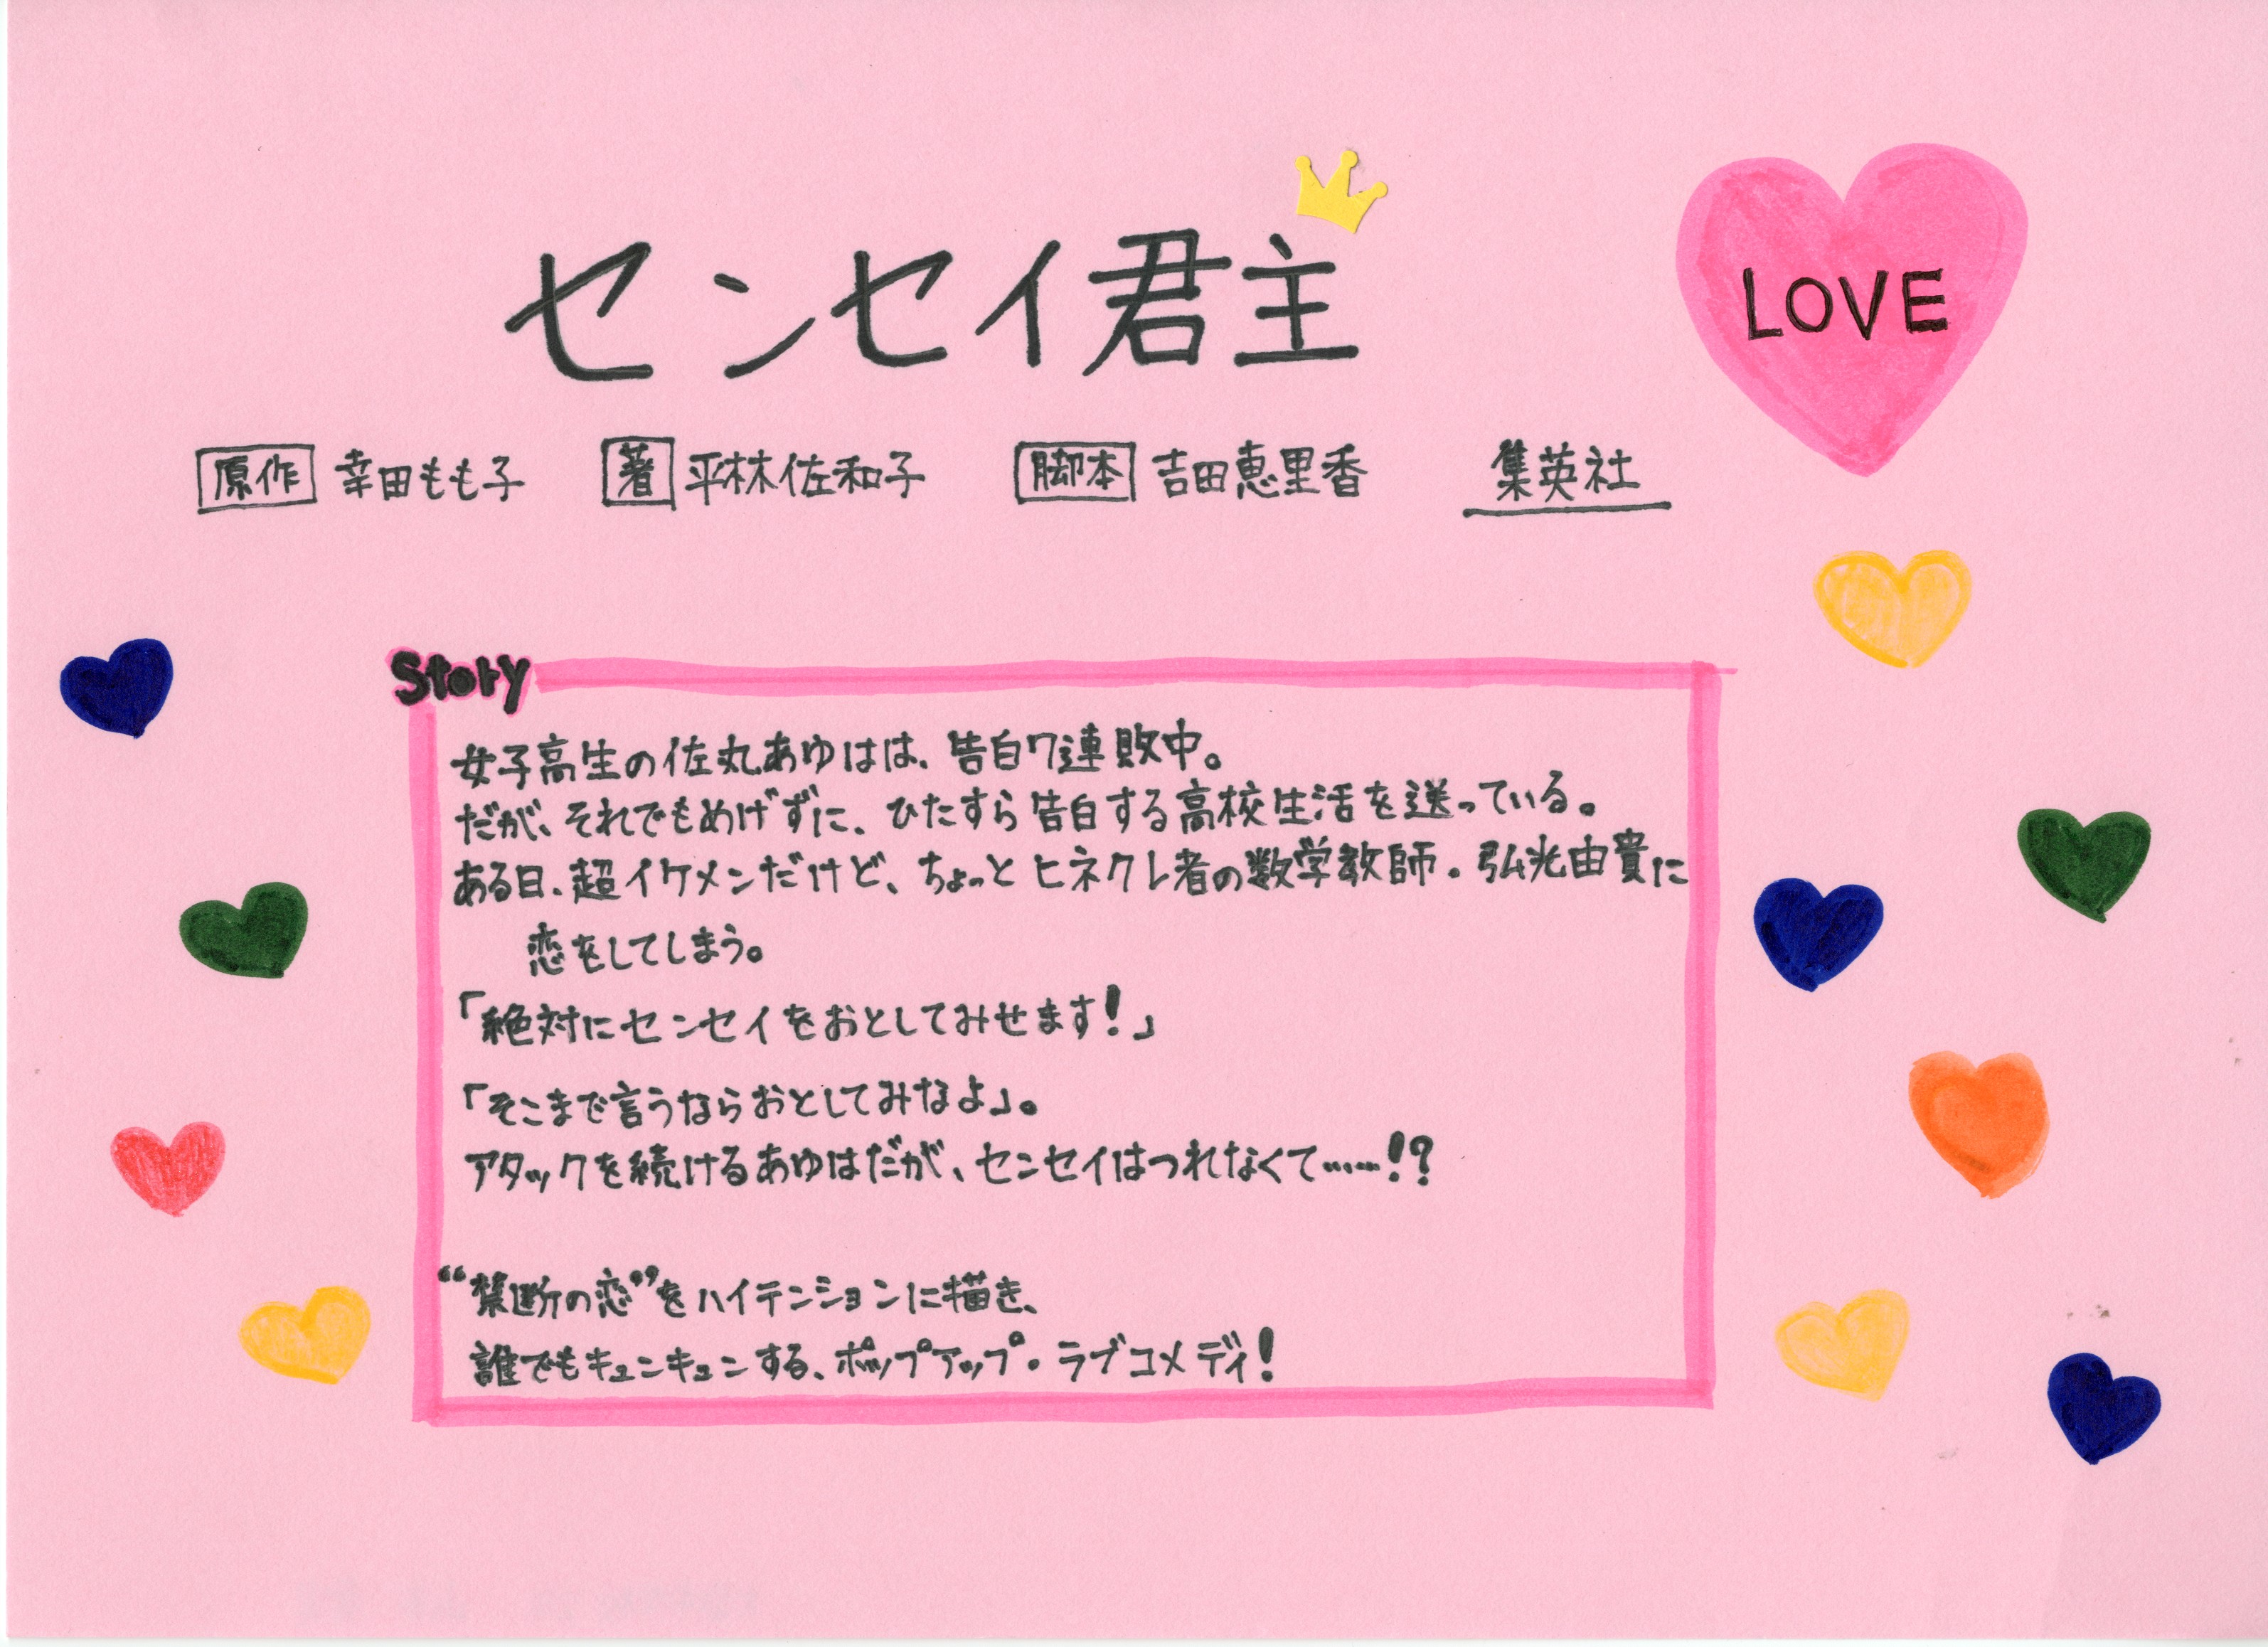 センセイ君主
LOVE
原作 幸田もも子 著 平林佐和子 脚本 吉田恵里香 集英社
Story
女子高生の佐丸あゆはは、告白7連敗中。
だが、それでもめげずに、ひたすら告白する高校生活を送っている。
ある日、超イケメンだけど、ちょっとヒネクレ者の数学教師・弘光由貴に
恋をしてしまう。
「絶対にセンセイをおとしてみせます!」
「そこまで言うならおとしてみなよ」。
アタックを続けるあゆはだが、センセイはつれなくて……!?
“禁断の恋”をハイテンションに描き、
誰でもキュンキュンする、ポップアップ・ラブコメディ!